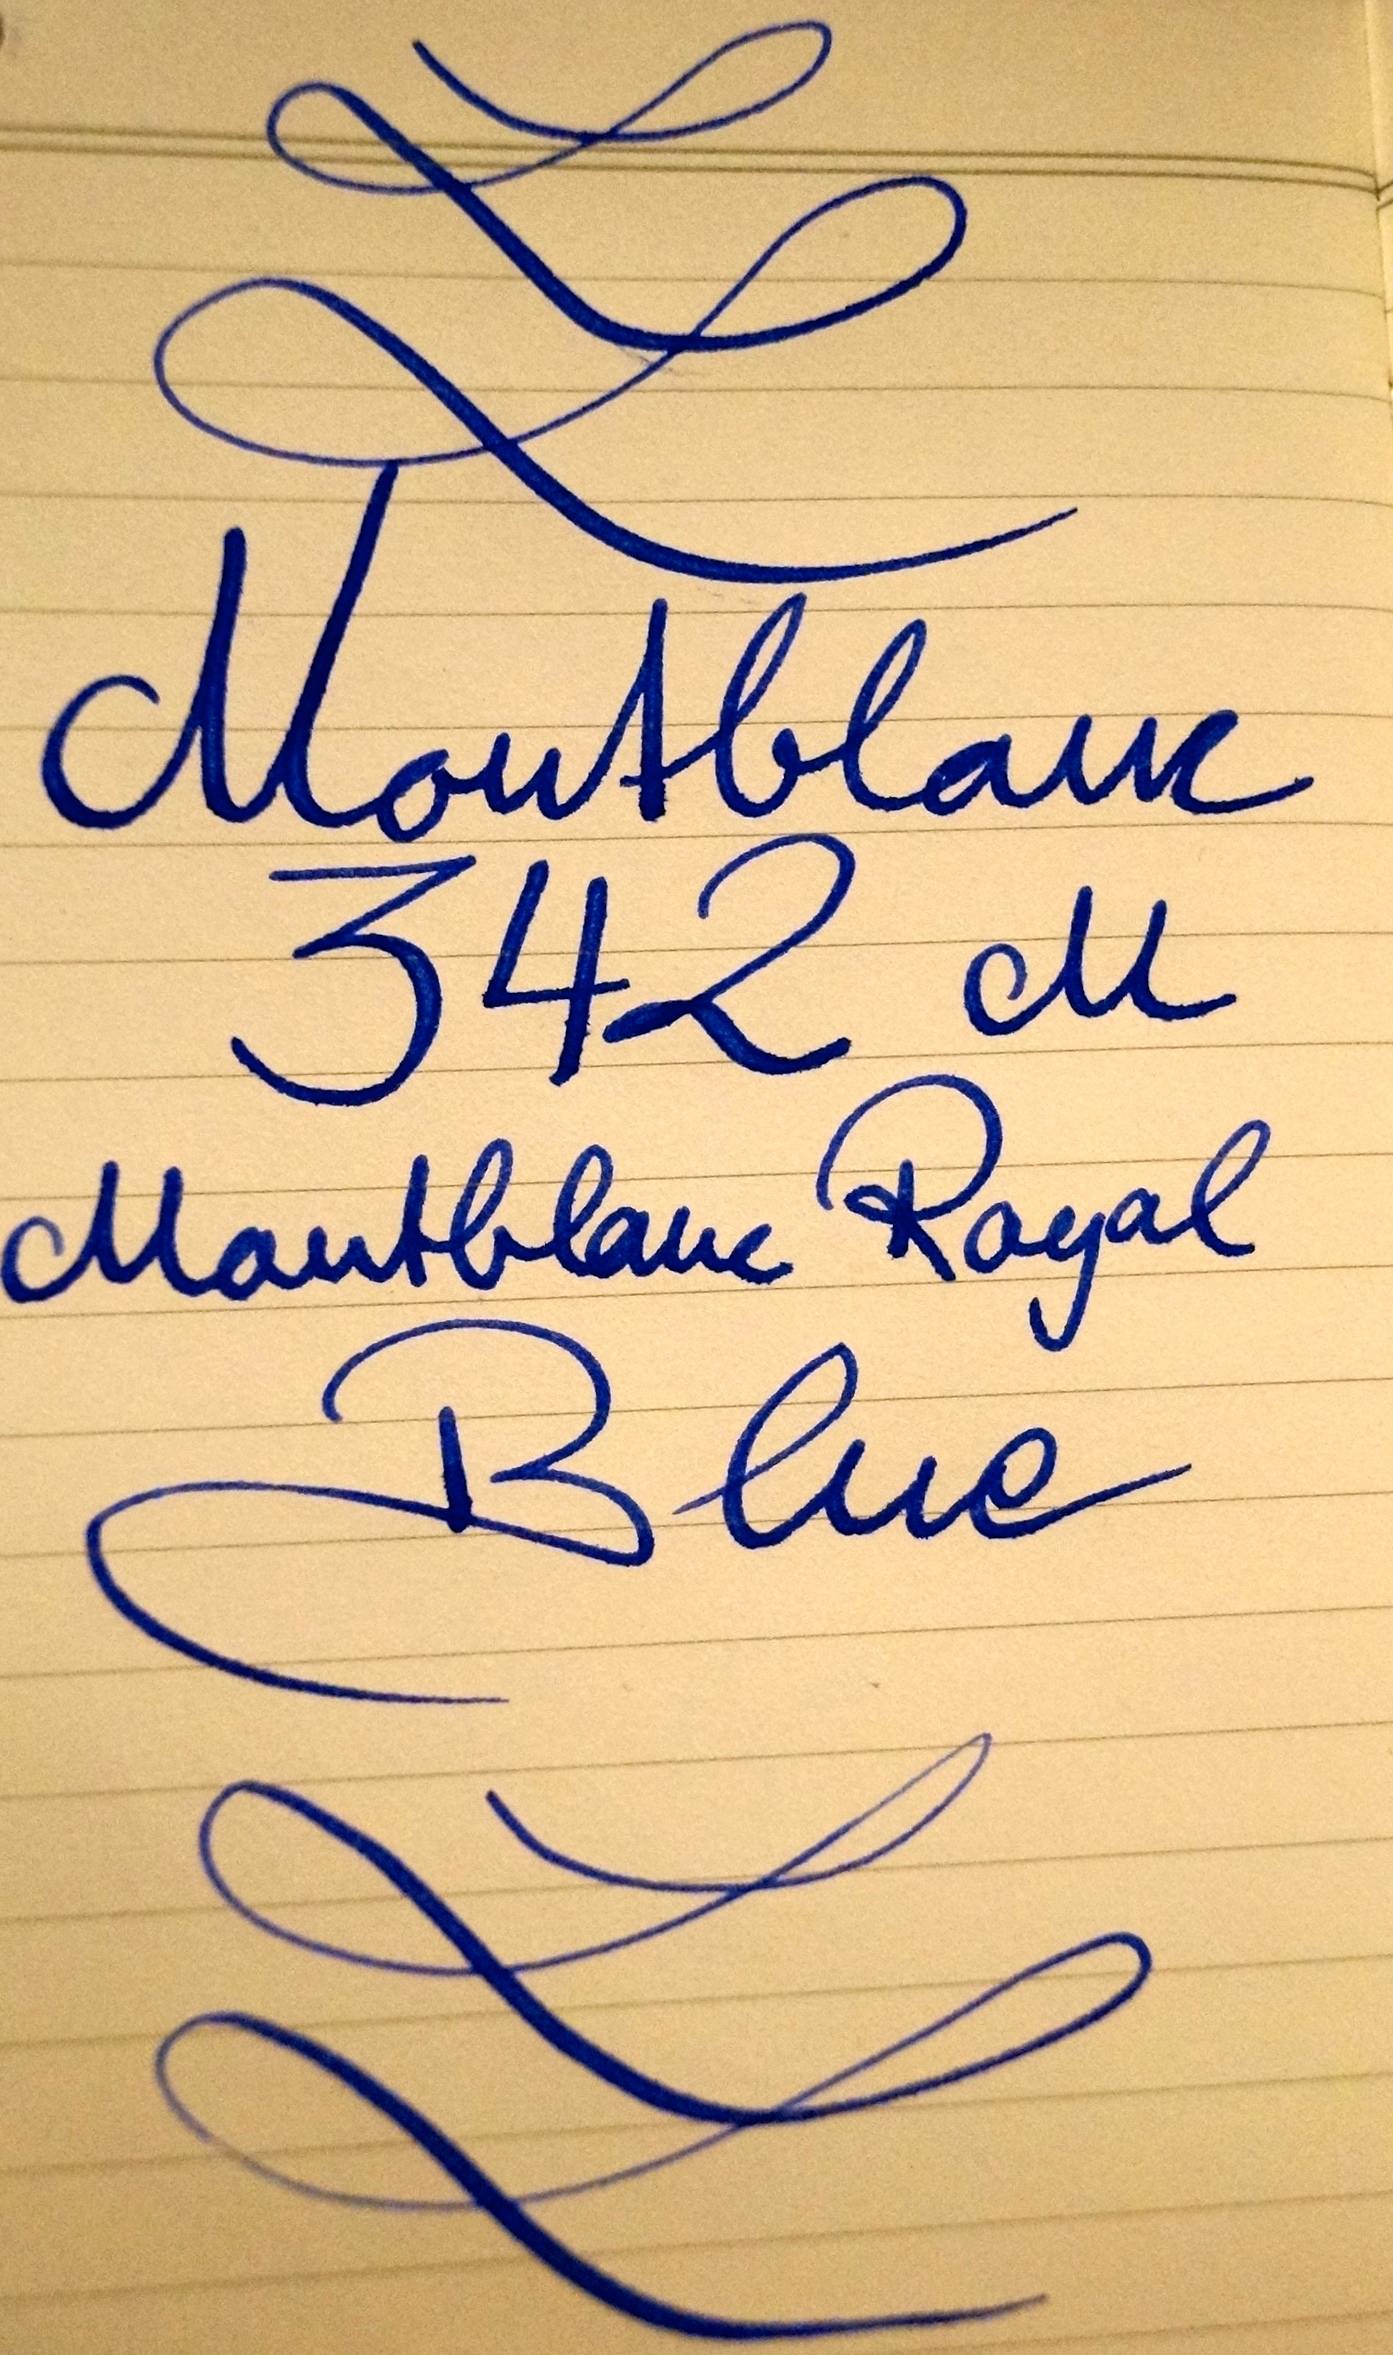 Montblanc
342 M
Montblanc Royal
Blue